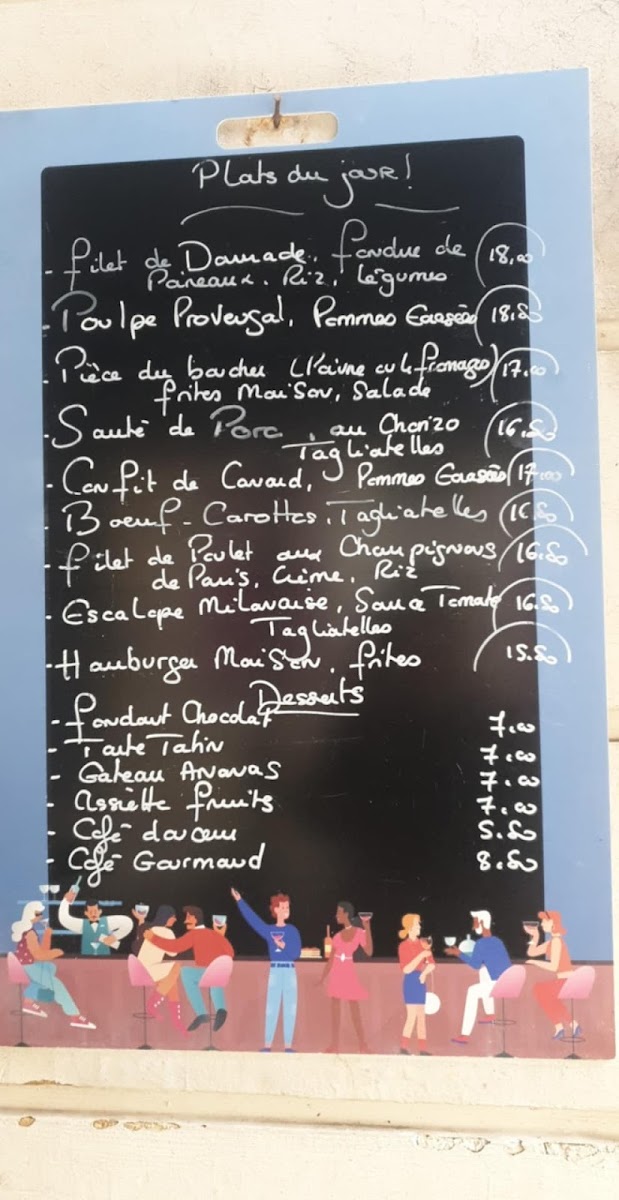 Plats du jour!
- filet de Daurade, fondue de 18,00
Poireaux, Riz, légumes
- Poulpe Provençal, Pommes Garsées 18.50
- Pièce du boucher (Poivre ou 4 fromages) 17.00
frites Maison, Salade
- Sauté de Porc, au Chorizo 16.50
Tagliatelles
- Confit de Canard, Pommes Garsées 17.00
- Boeuf-Carottes, Tagliatelles 16.50
- filet de Poulet aux Champignons 16.50
de Paris, Crème, Riz
- Escalope Milanaise, Sauce Tomate 16.50
Tagliatelles
- Hamburger Maison, frites 15.50
Desserts
- fondant Chocolat 7.00
- Tarte Tatin 7.00
- Gâteau Ananas 7.00
- Assiette fruits 7.00
- Café douceur 5.50
- Café Gourmand 8.50